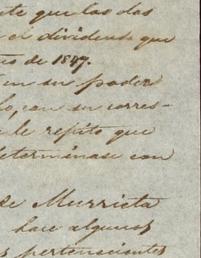 te que las dos
el dividendo que
de 1847.
en su poder
lo, con su corres-
le repito que
determinase con
de Murrieta
hace algunos
pertenecientes